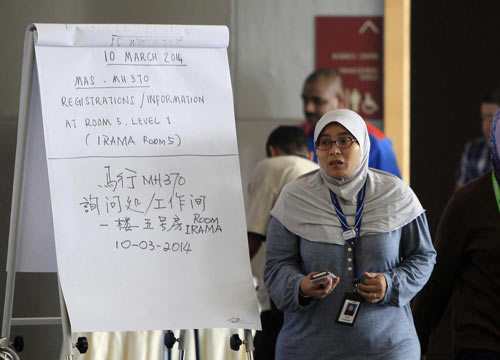 10 MARCH 2014
MAS - MH370
REGISTRATIONS / INFORMATION
AT ROOM 5, LEVEL 1.
( IRAMA ROOM 5 )
馬行 MH370
詢问组/工作间
一楼五号房 ROOM IRAMA
10-03-2014